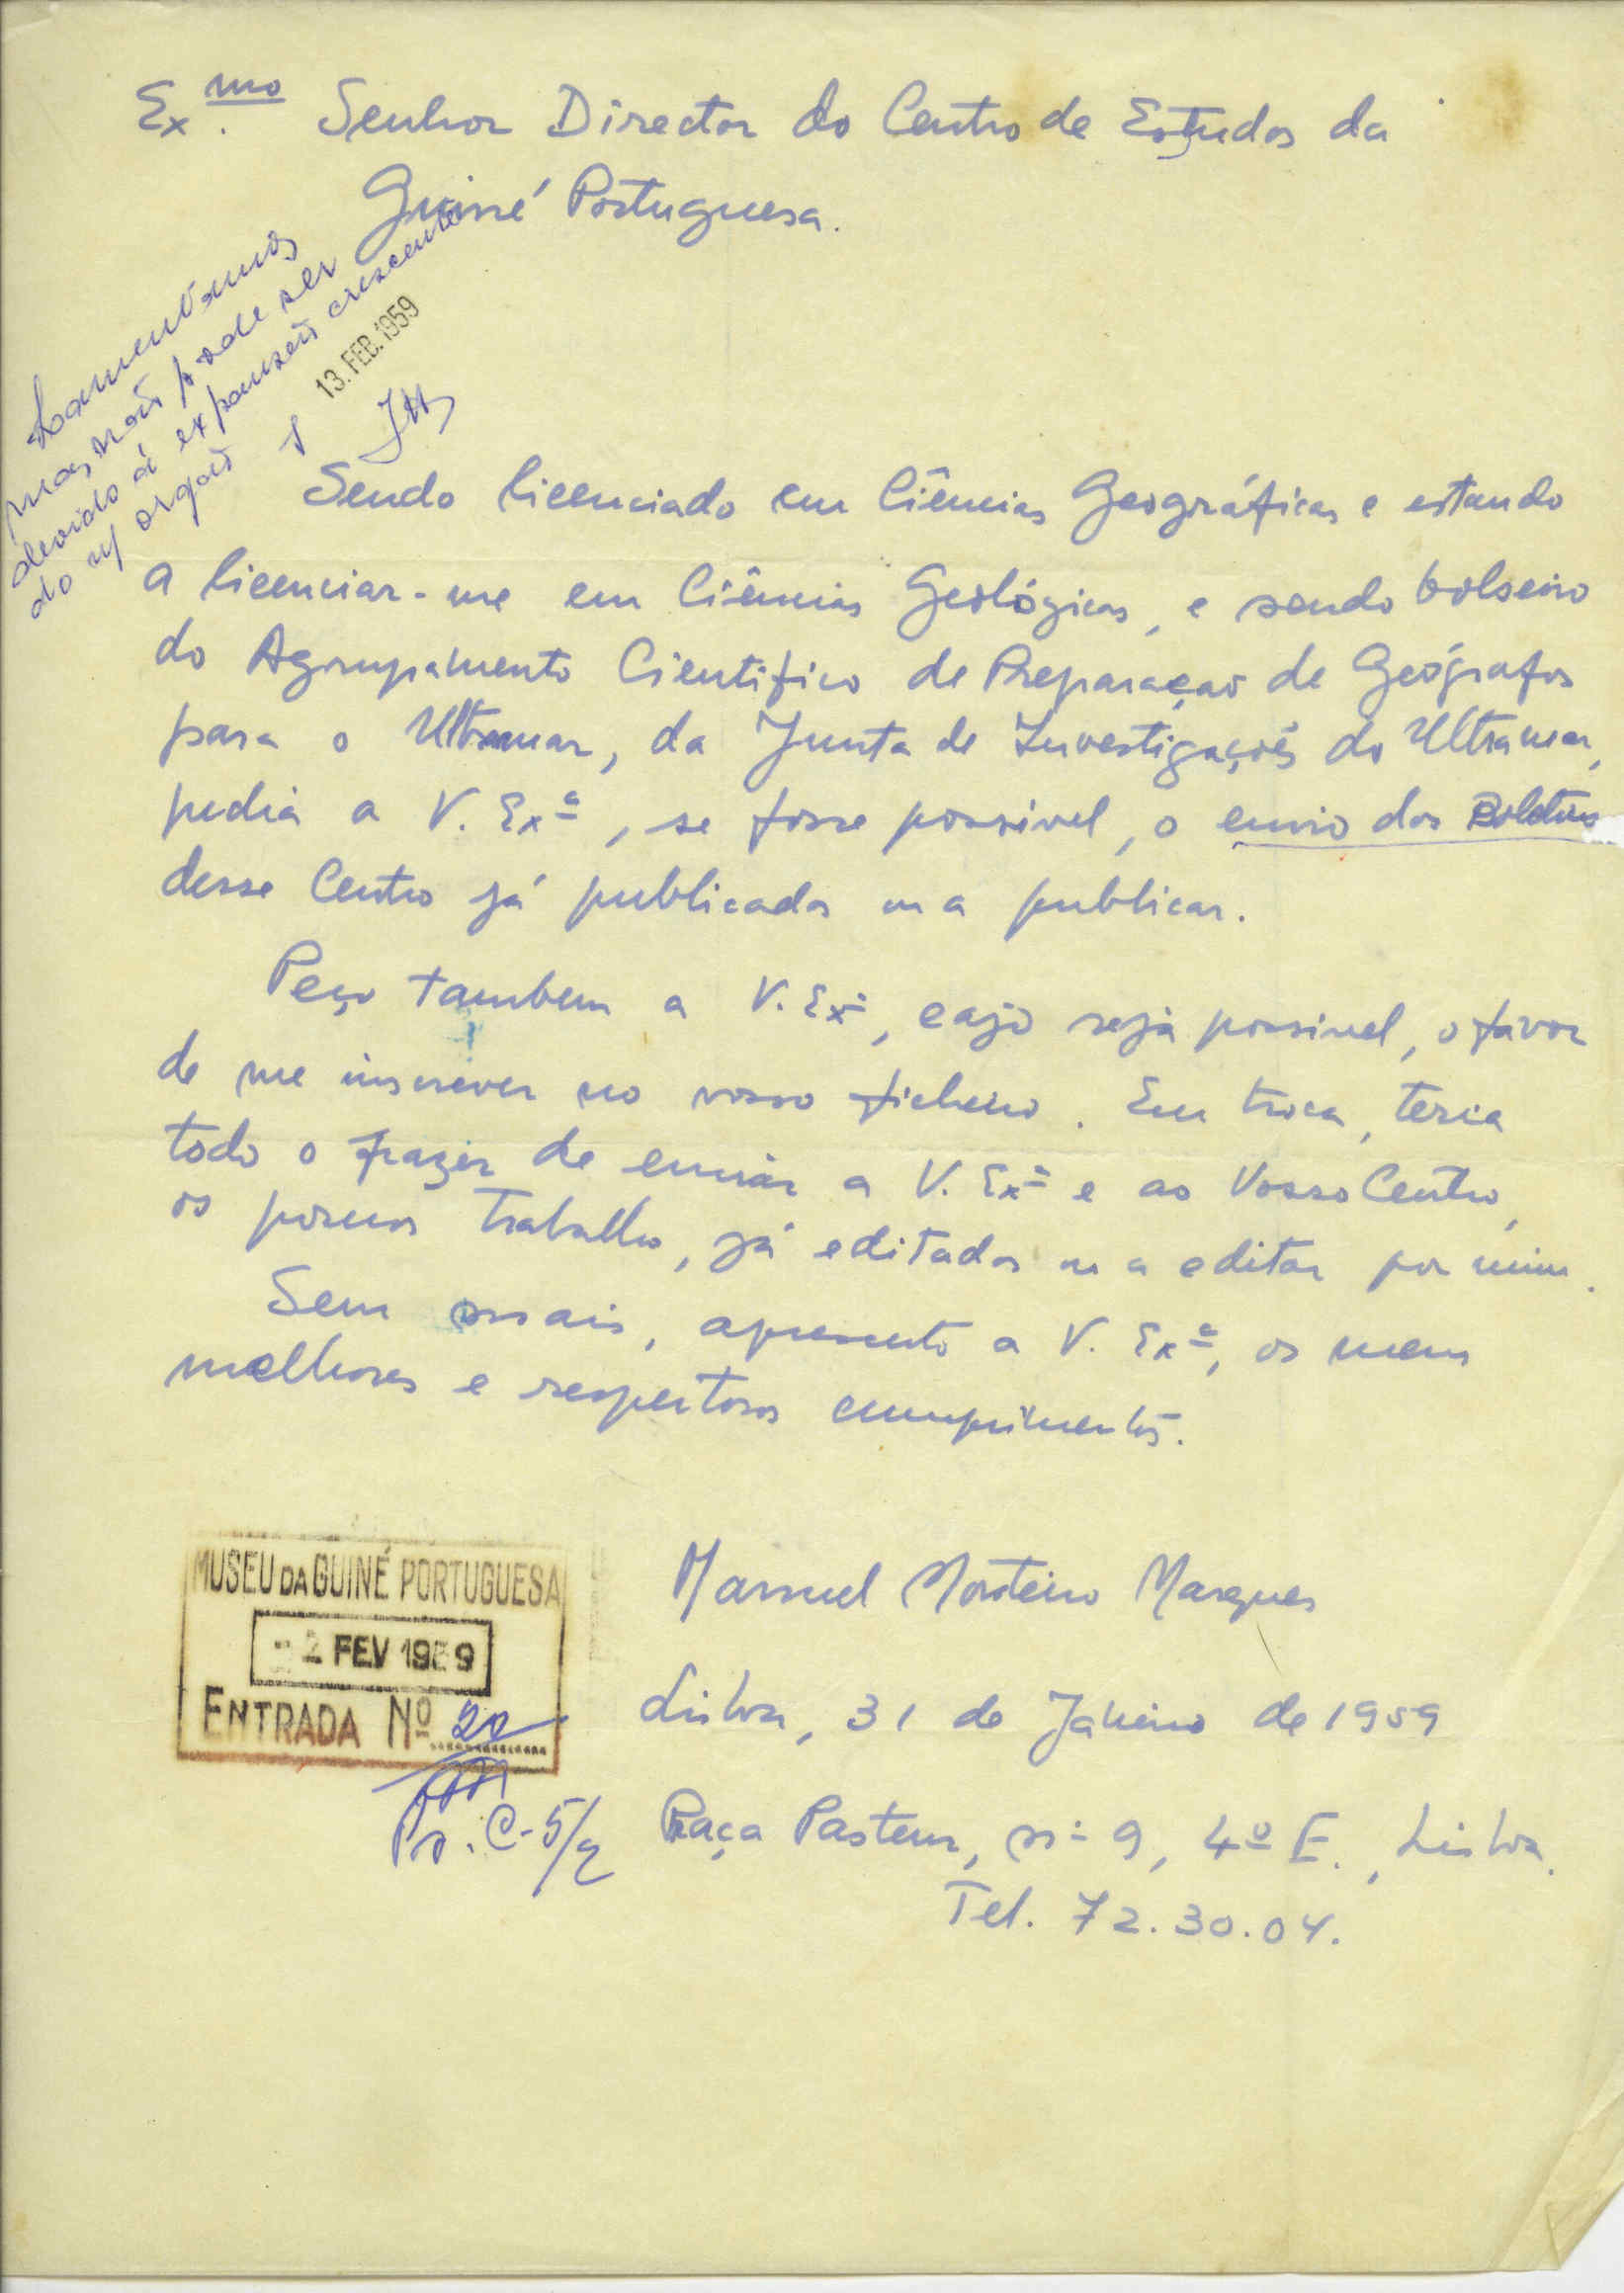 Ex.mo Senhor Director do Centro de Estudos da
Guiné Portuguesa.
Lamentamos
mas não pode ser
devido á expansão crescente
do n/ orgão
13. FEB. 1959
Sendo licenciado em Ciências Geográficas e estando
a licenciar-me em Ciências Geológicas, e sendo bolseiro
do Agrupamento Cientifico de Preparação de Geógrafos
para o Ultramar, da Junta de Investigações do Ultramar,
pedia a V. Exª, se fosse possivel, o envio dos Boletins
desse Centro já publicados ou a publicar.
Peço tambem a V. Exª, caso seja possivel, o favor
de me inscrever no vosso ficheiro. Em troca, teria
todo o prazer de enviar a V. Exª e ao Vosso Centro,
os poucos trabalhos, já editados ou a editar por mim.
Sem mais, apresento a V. Exª, os meus
melhores e respeitosos cumprimentos.
Manuel Monteiro Marques
MUSEU DA GUINÉ PORTUGUESA
-2 FEV 1959
ENTRADA Nº 20
Lisboa, 31 de Janeiro de 1959
Pr. C-5/2
Praça Pasteur, nº 9, 4º E., Lisboa.
Tel. 72.30.04.